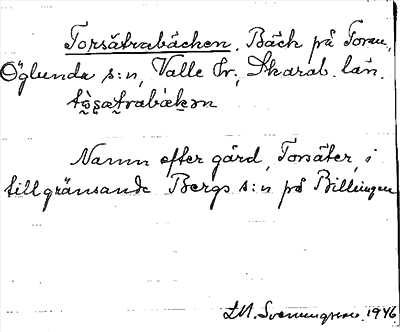 Torsätrabäcken. Bäck på Toran,
Öglunda s:n, Valle hr; Skarab. län.
Namn efter gård, Torsäter, i
tillgränsande Bergs s:n på Billingen
Svenungsson. 1946